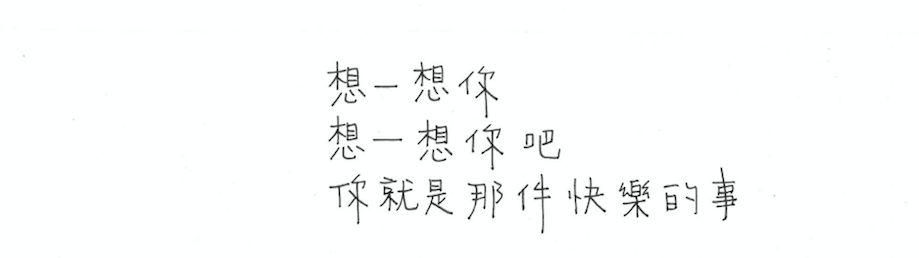 想一想你
想一想你吧
你就是那件快樂的事